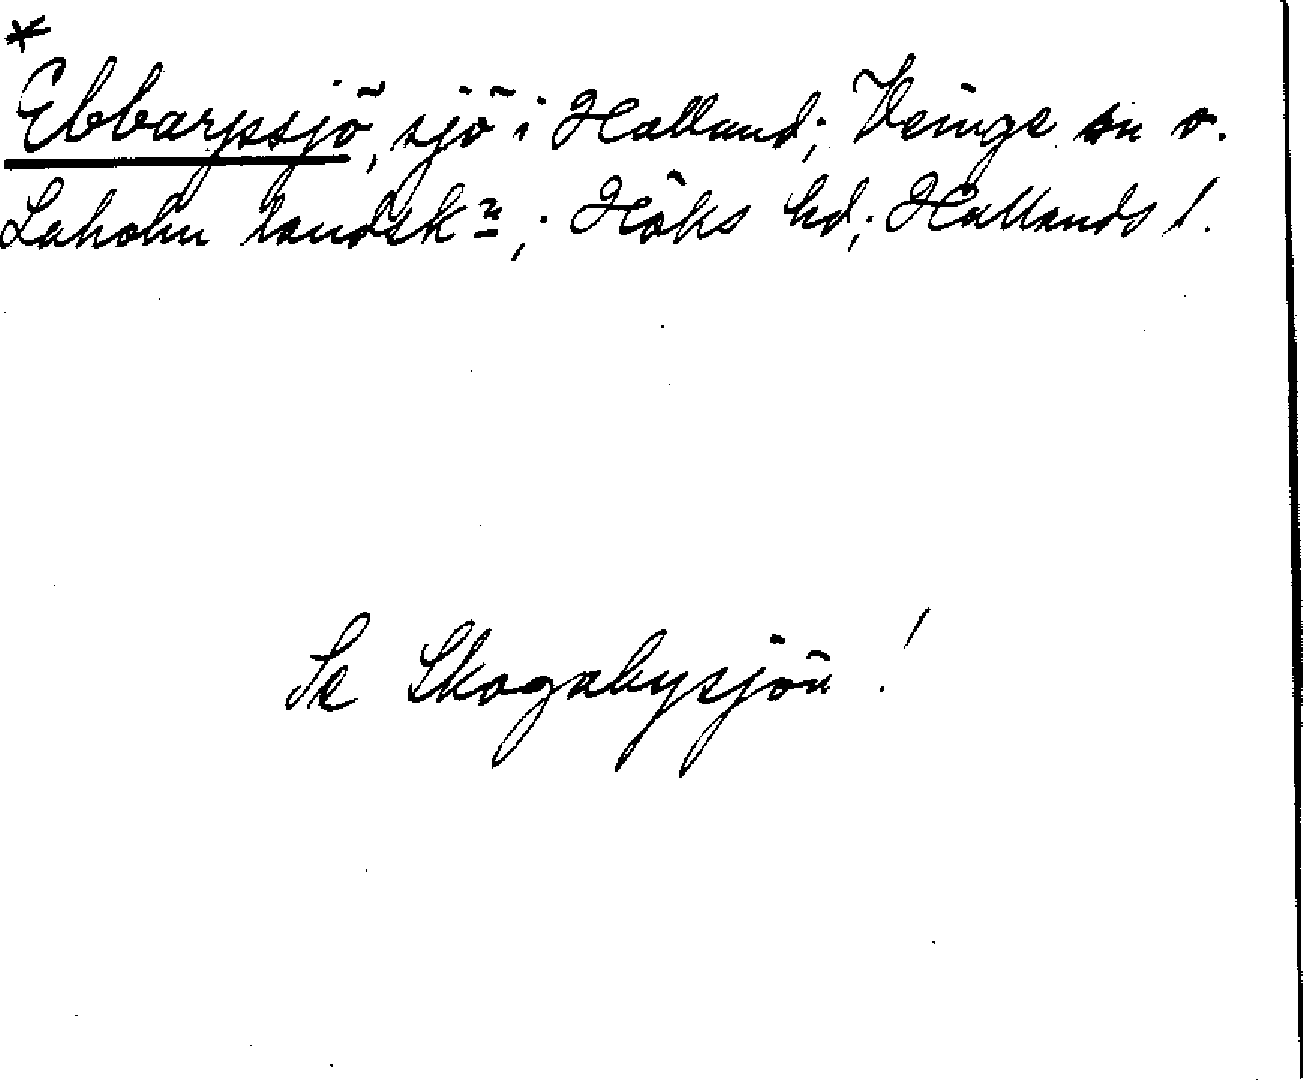 *
Ebbarpssjö, sjö i Halland; Veinge sn o.
Laholm landsk:n; Höks hd; Hallands l.
Se Skogabysjön!